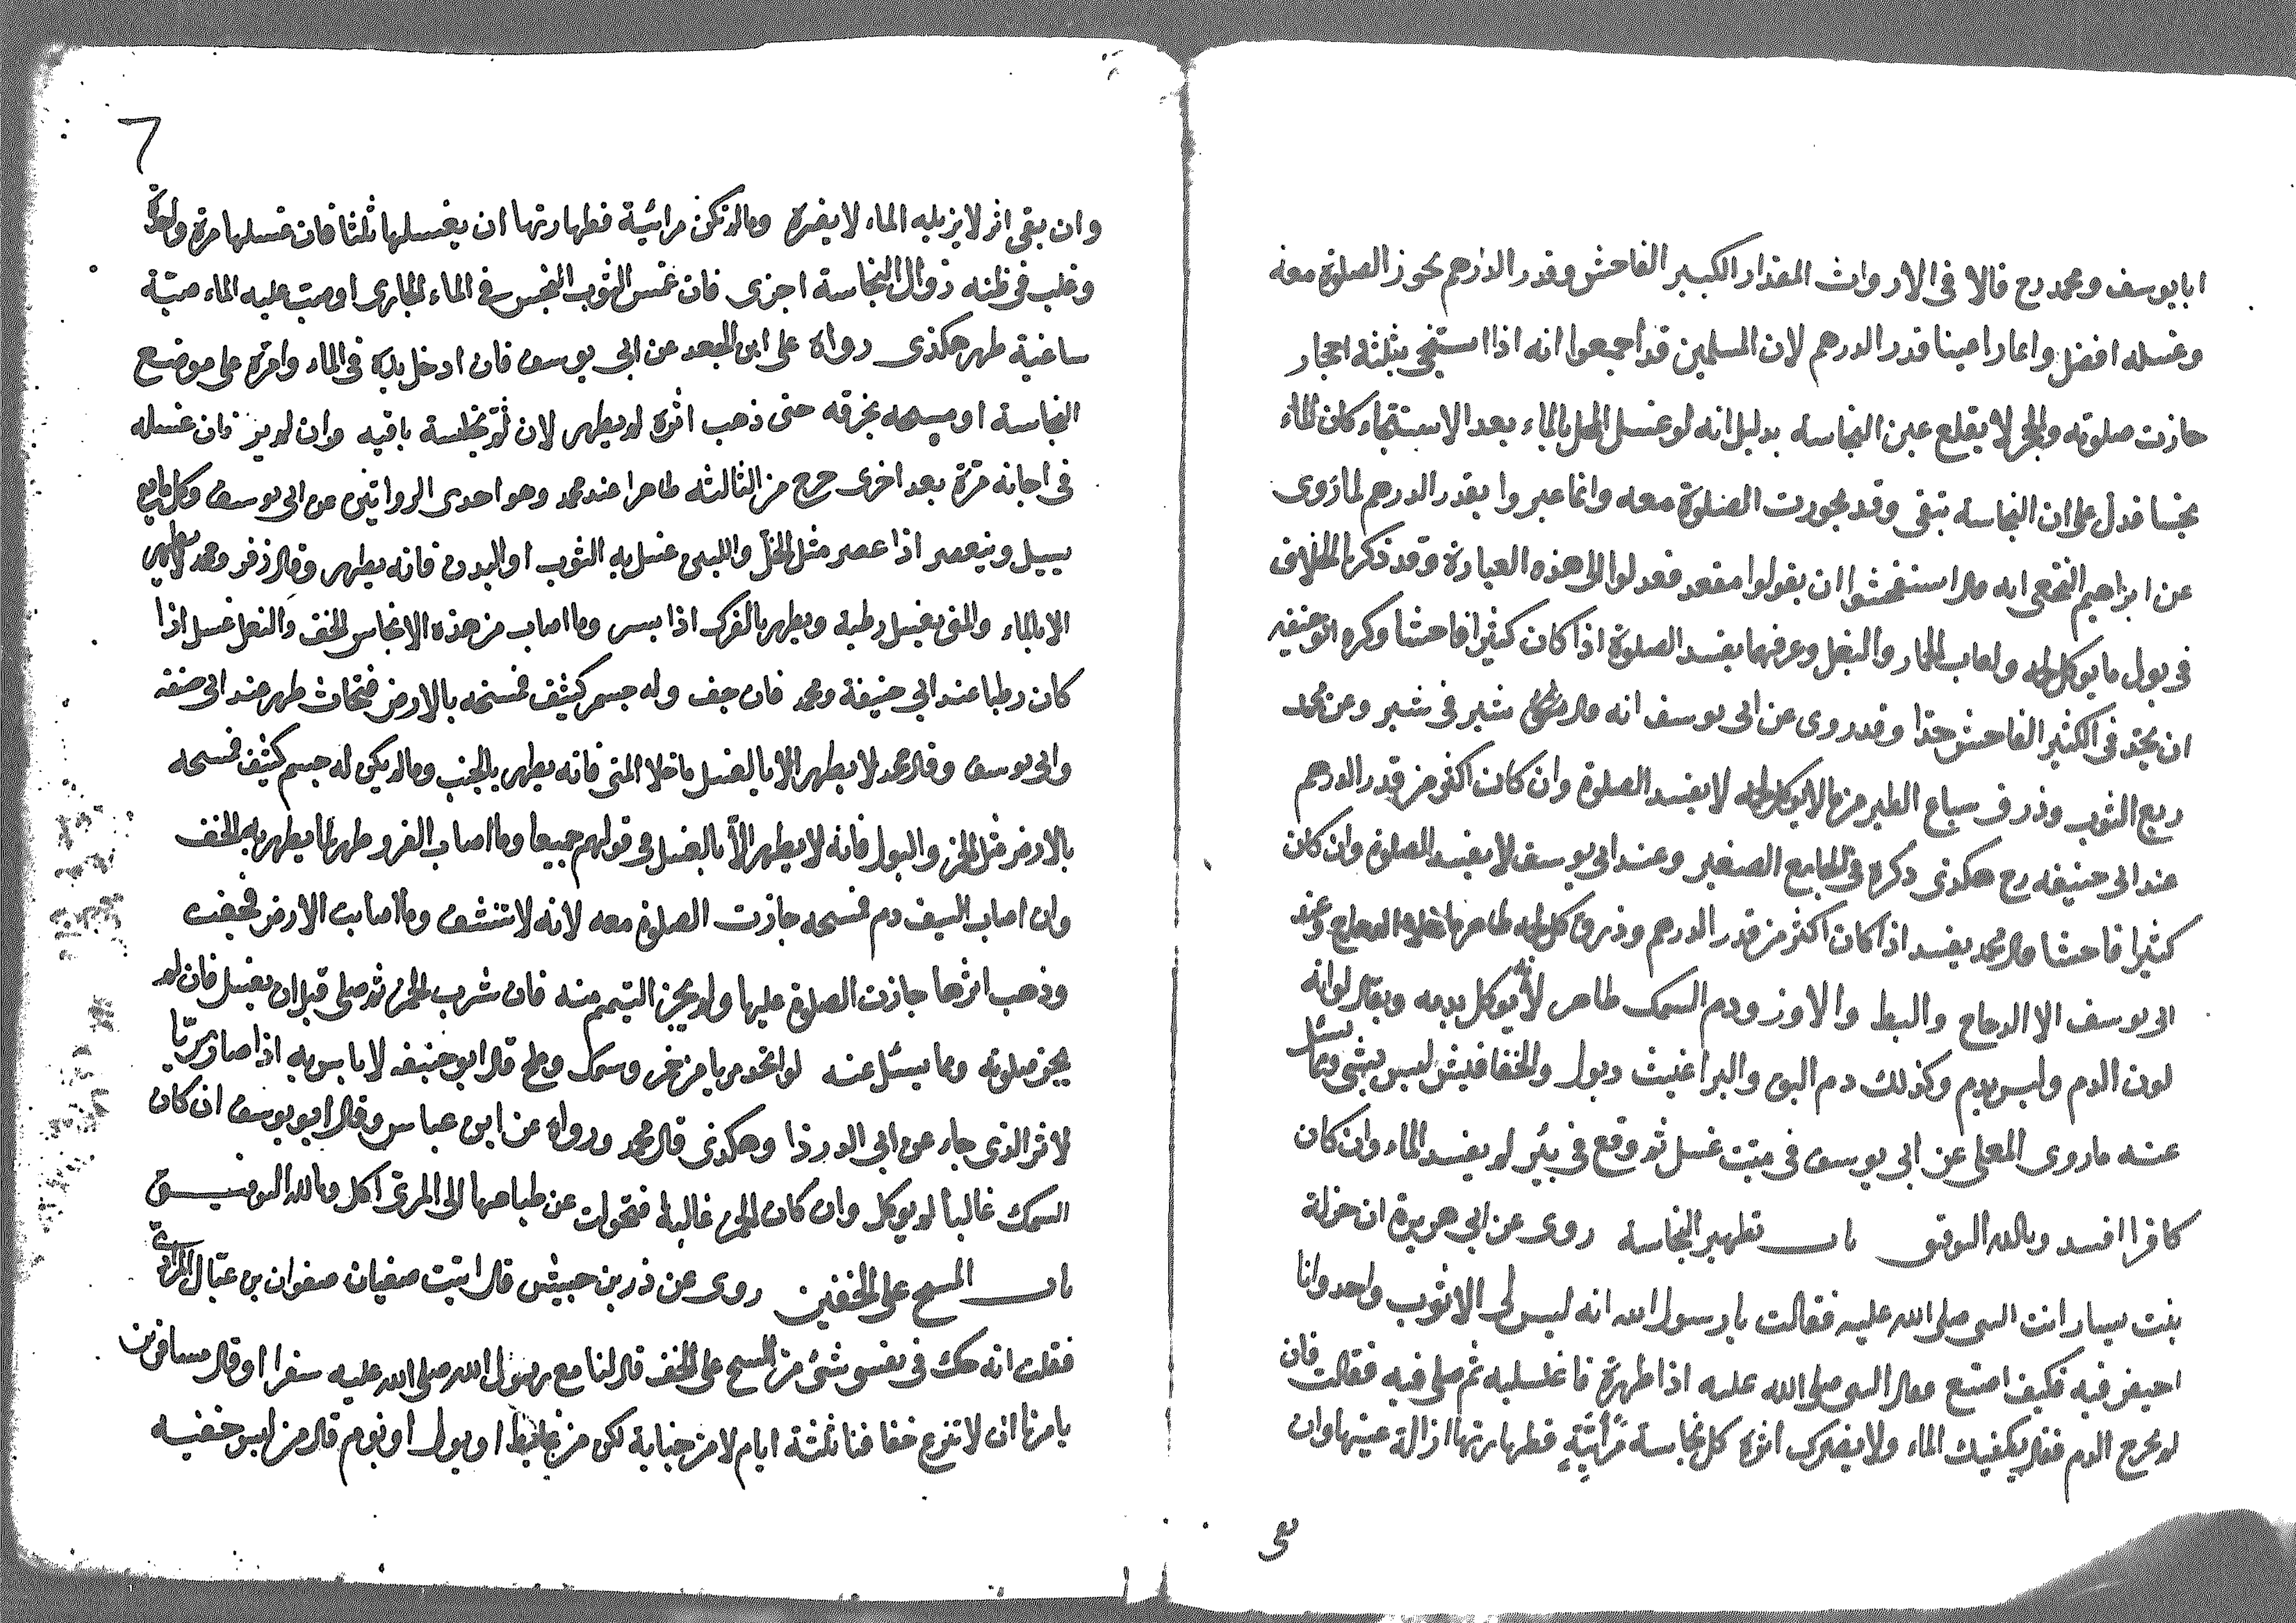 ابايوسف ومحمد رح قالا فى الارواث المقدار الكبير الفاحش وقدر الدرهم يجوز الصلوة معه
وغسله افضل وانما راعينا قدر الدرهم لان المسلمين قد أجمعوا انه اذا استنجى بثلثه احجار
جازت صلوته والحجر لا يقلع عين النجاسة بدليل انه لو غسل المحل بالماء بعد الاستنجاء كان الماء
نجسا فدل على ان النجاسة تبقى وقد يجوزت الصلوة معه وانما عبروا بقدر الدرهم لما روى
عن ابراهيم النخعى انه قال استفحشوا ان يقولوا مقعد فعدلوا الى هذه العبارة وقد ذكرنا الخلاف
فى بول ما يوكل لحمه ولعاب الحمار والبغل وعرقهما يفسد الصلوة اذا كان كثيرا فاحشا وكره ابو حنيفه
ان يحد فى الكثير الفاحش حدا وقد روى عن ابى يوسف انه قال شبر فى شبر وعن محمد
ربع الثوب وذرق سباع الطير مما لا يوكل لحمه لا يفسد الصلوة وان كان اكثر من قدر الدرهم
عند ابى حنيفه رح هكذى ذكره فى الجامع الصغير وعند ابى يوسف لا يفسد الصلوة وان كان
كثيرا فاحشا قال محمد يفسد اذا كان اكثر من قدر الدرهم وذرق كل لحمه طاهر ما خلا الدجاج وعند
ابى يوسف الا الدجاج والبط والاوز ودم السمك طاهر لانه يوكل بدمه ويقال لوانه
لون الدم وليس بدم وكذلك دم البق والبراغيث وبول والخفافيش ليس بشئ ومما يسئل
عنه ما روى المعلى عن ابى يوسف فى ميت غسل ثم وقع فى بئر لم يفسد الماء وان كان
كافرا افسد وبالله التوفيق باب تطهير النجاسة روى عن ابى هريرة ان خولة
بنت يسار اتت النبى صلى الله عليه فقالت يا رسول الله انه ليس لى الا ثوب واحد وانا
احيض فيه فكيف اصنع فقال النبى صلى الله عليه اذا طهرت فاغسليه ثم صلى فيه فقالت فان
لم يخرج الدم فقال يكفيك الماء ولا يضرك اثره كل نجاسة مرأيّة فطهارتها ازالة عينها وان
٦
وان بقى اثر لا يزيله الماء لا يضره وما لم تكن مرائية فطهارتها ان يغسلها ثلثا فان غسلها مرة واحدة
وغلب فى ظنه زوال النجاسة اجزى فان غمس الثوب النجس فى الماء الجارى او صب عليه الماء صبة
ساغية طهر هكذى رواه على ابن الجعد عن ابى يوسف فان ادخل يده فى الماء وامره على موضع
النجاسة او مسحه بخرقه حتى ذهب اثره لم يطهر لان باقيه وان لم ير فان غسله
فى اجانه مرة بعد اخرى خرج من الثالثه طاهرا عند محمد وهو احدى الروايتين عن ابى يوسف وكل مايع
يسيل وينعصر اذا عصر مثل الخل واللبن غسل به الثوب او البدن فانه يطهر وقال زفر ومحمد لا يطهر
الا بالماء والمنى يغسل رطبه ويطهر بالفرك اذا يبس وما اصاب من هذه الانجاس الخف والنعل غسل اذا
كان رطبا عند ابي حنيفة ومحمد فان جف وله جسم كثيف فمسحه بالارض فتحاث طهر عند ابى حنيفه
وابى يوسف وقال محمد لا يطهر الا بالغسل ما خلا المنى فانه يطهر بالحت وما لم يكن له جسم كثيف فمسحه
بالارض مثل الخمر والبول فانه لا يطهر الا بالغسل فى قولهم جميعا وما اصاب الفرو طهر بما يطهر به الخف
وان اصاب السيف دم فمسحه جازت الصلوة معه لانه لا تنشف وما اصابت الارض فجفت
وذهب اثرها جازت الصلوة عليها ولم يجز التيمم منه فان شرب الخمر ثم صلى قبل ان يغسل فان لم
يجز صلوته ومما يسئل عنه لو اتخذ مريا من خمر وسمك وملح قال ابو حنيفه لا باس به اذا صار مريّا
لاثر الذى جاء عن ابي الدرذا وهكذى قال محمد ورواه عن ابن عباس وقال ابو يوسف ان كان
السمك غالبا لم يوكل وان كان الخمر غالبة فتحولت عن طباعها الى المرى اكل وبالله التوفيـــق
باب المسح على الخفين روى عن ذر بن حبيش قال اتيت صفيان صفوان بن عسال المرادى
فقلت انه حك فى نفسى شئ من المسح على الخف قال لنا مع رسول الله صلى الله عليه سفرا او قال مسافرين
يامرنا ان لا ننزع خفافنا ثلثة ايام لا من جنابة لكن من غايط او بول او نوم قال من لبس خفيه